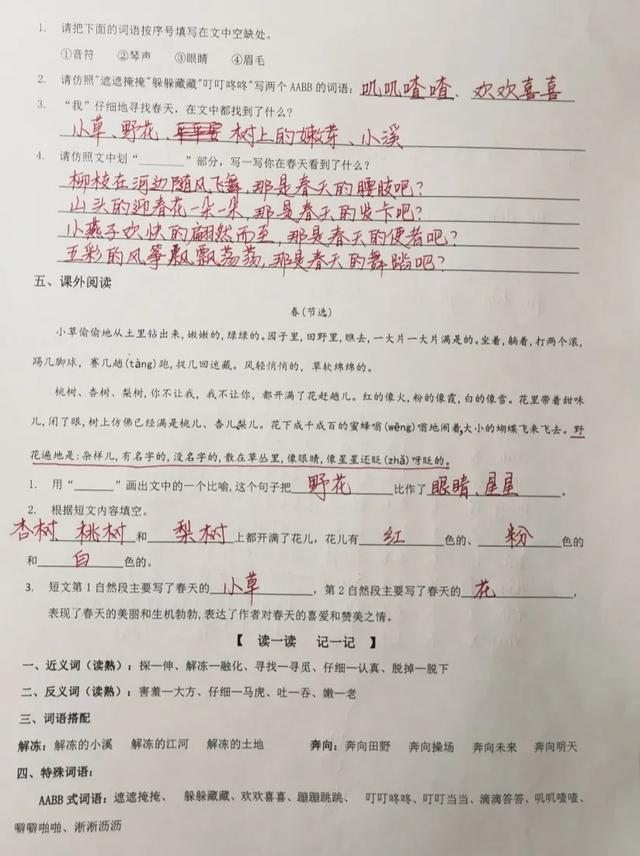 1. 请把下面的词语按序号填写在文中空缺处。
①音符 ②琴声 ③眼睛 ④眉毛
2. 请仿照"遮遮掩掩""躲躲藏藏""叮叮咚咚"写两个AABB的词语：叽叽喳喳、欢欢喜喜
3. “我”仔细地寻找春天，在文中都找到了什么？
小草、野花、树上的嫩芽、小溪
4. 请仿照文中划“________”部分，写一写你在春天看到了什么？
柳枝在河边随风飞舞，那是春天的腰肢吧？
山头的迎春花一朵一朵，那是春天的发卡吧？
小燕子欢快的翩然而至，那是春天的使者吧？
五彩的风筝飘飘荡荡，那是春天的舞蹈吧？
五、课外阅读
春(节选)
小草偷偷地从土里钻出来，嫩嫩的，绿绿的。园子里，田野里，瞧去，一大片一大片满是的。坐着，躺着，打两个滚，
踢几脚球，赛几趟(tàng)跑，捉几回迷藏。风轻悄悄的，草软绵绵的。
桃树、杏树、梨树，你不让我，我不让你，都开满了花赶趟儿。红的像火，粉的像霞，白的像雪。花里带着甜味
儿，闭了眼，树上仿佛已经满是桃儿、杏儿、梨儿。花下成千成百的蜜蜂嗡(wēng)嗡地闹着，大小的蝴蝶飞来飞去。野
花遍地是：杂样儿，有名字的，没名字的，散在草丛里，像眼睛，像星星还眨(zhǎ)呀眨的。
1. 用“______”画出文中的一个比喻，这个句子把 野花 比作了 眼睛、星星 。
2. 根据短文内容填空。
杏树、桃树 和 梨树 上都开满了花儿，花儿有 红 色的、 粉 色的
和 白 色的。
3. 短文第1自然段主要写了春天的 小草 ，第2自然段主要写了春天的 花 ，
表现了春天的美丽和生机勃勃，表达了作者对春天的喜爱和赞美之情。
【 读一读 记一记 】
一、近义词（读熟）：探—伸、解冻—融化、寻找—寻觅、仔细—认真、脱掉—脱下
二、反义词（读熟）：害羞—大方、仔细—马虎、吐—吞、嫩—老
三、词语搭配
解冻：解冻的小溪 解冻的江河 解冻的土地 奔向：奔向田野 奔向操场 奔向未来 奔向明天
四、特殊词语：
AABB式词语：遮遮掩掩、 躲躲藏藏、欢欢喜喜、蹦蹦跳跳、 叮叮咚咚、叮叮当当、滴滴答答、叽叽喳喳、
噼噼啪啪、淅淅沥沥